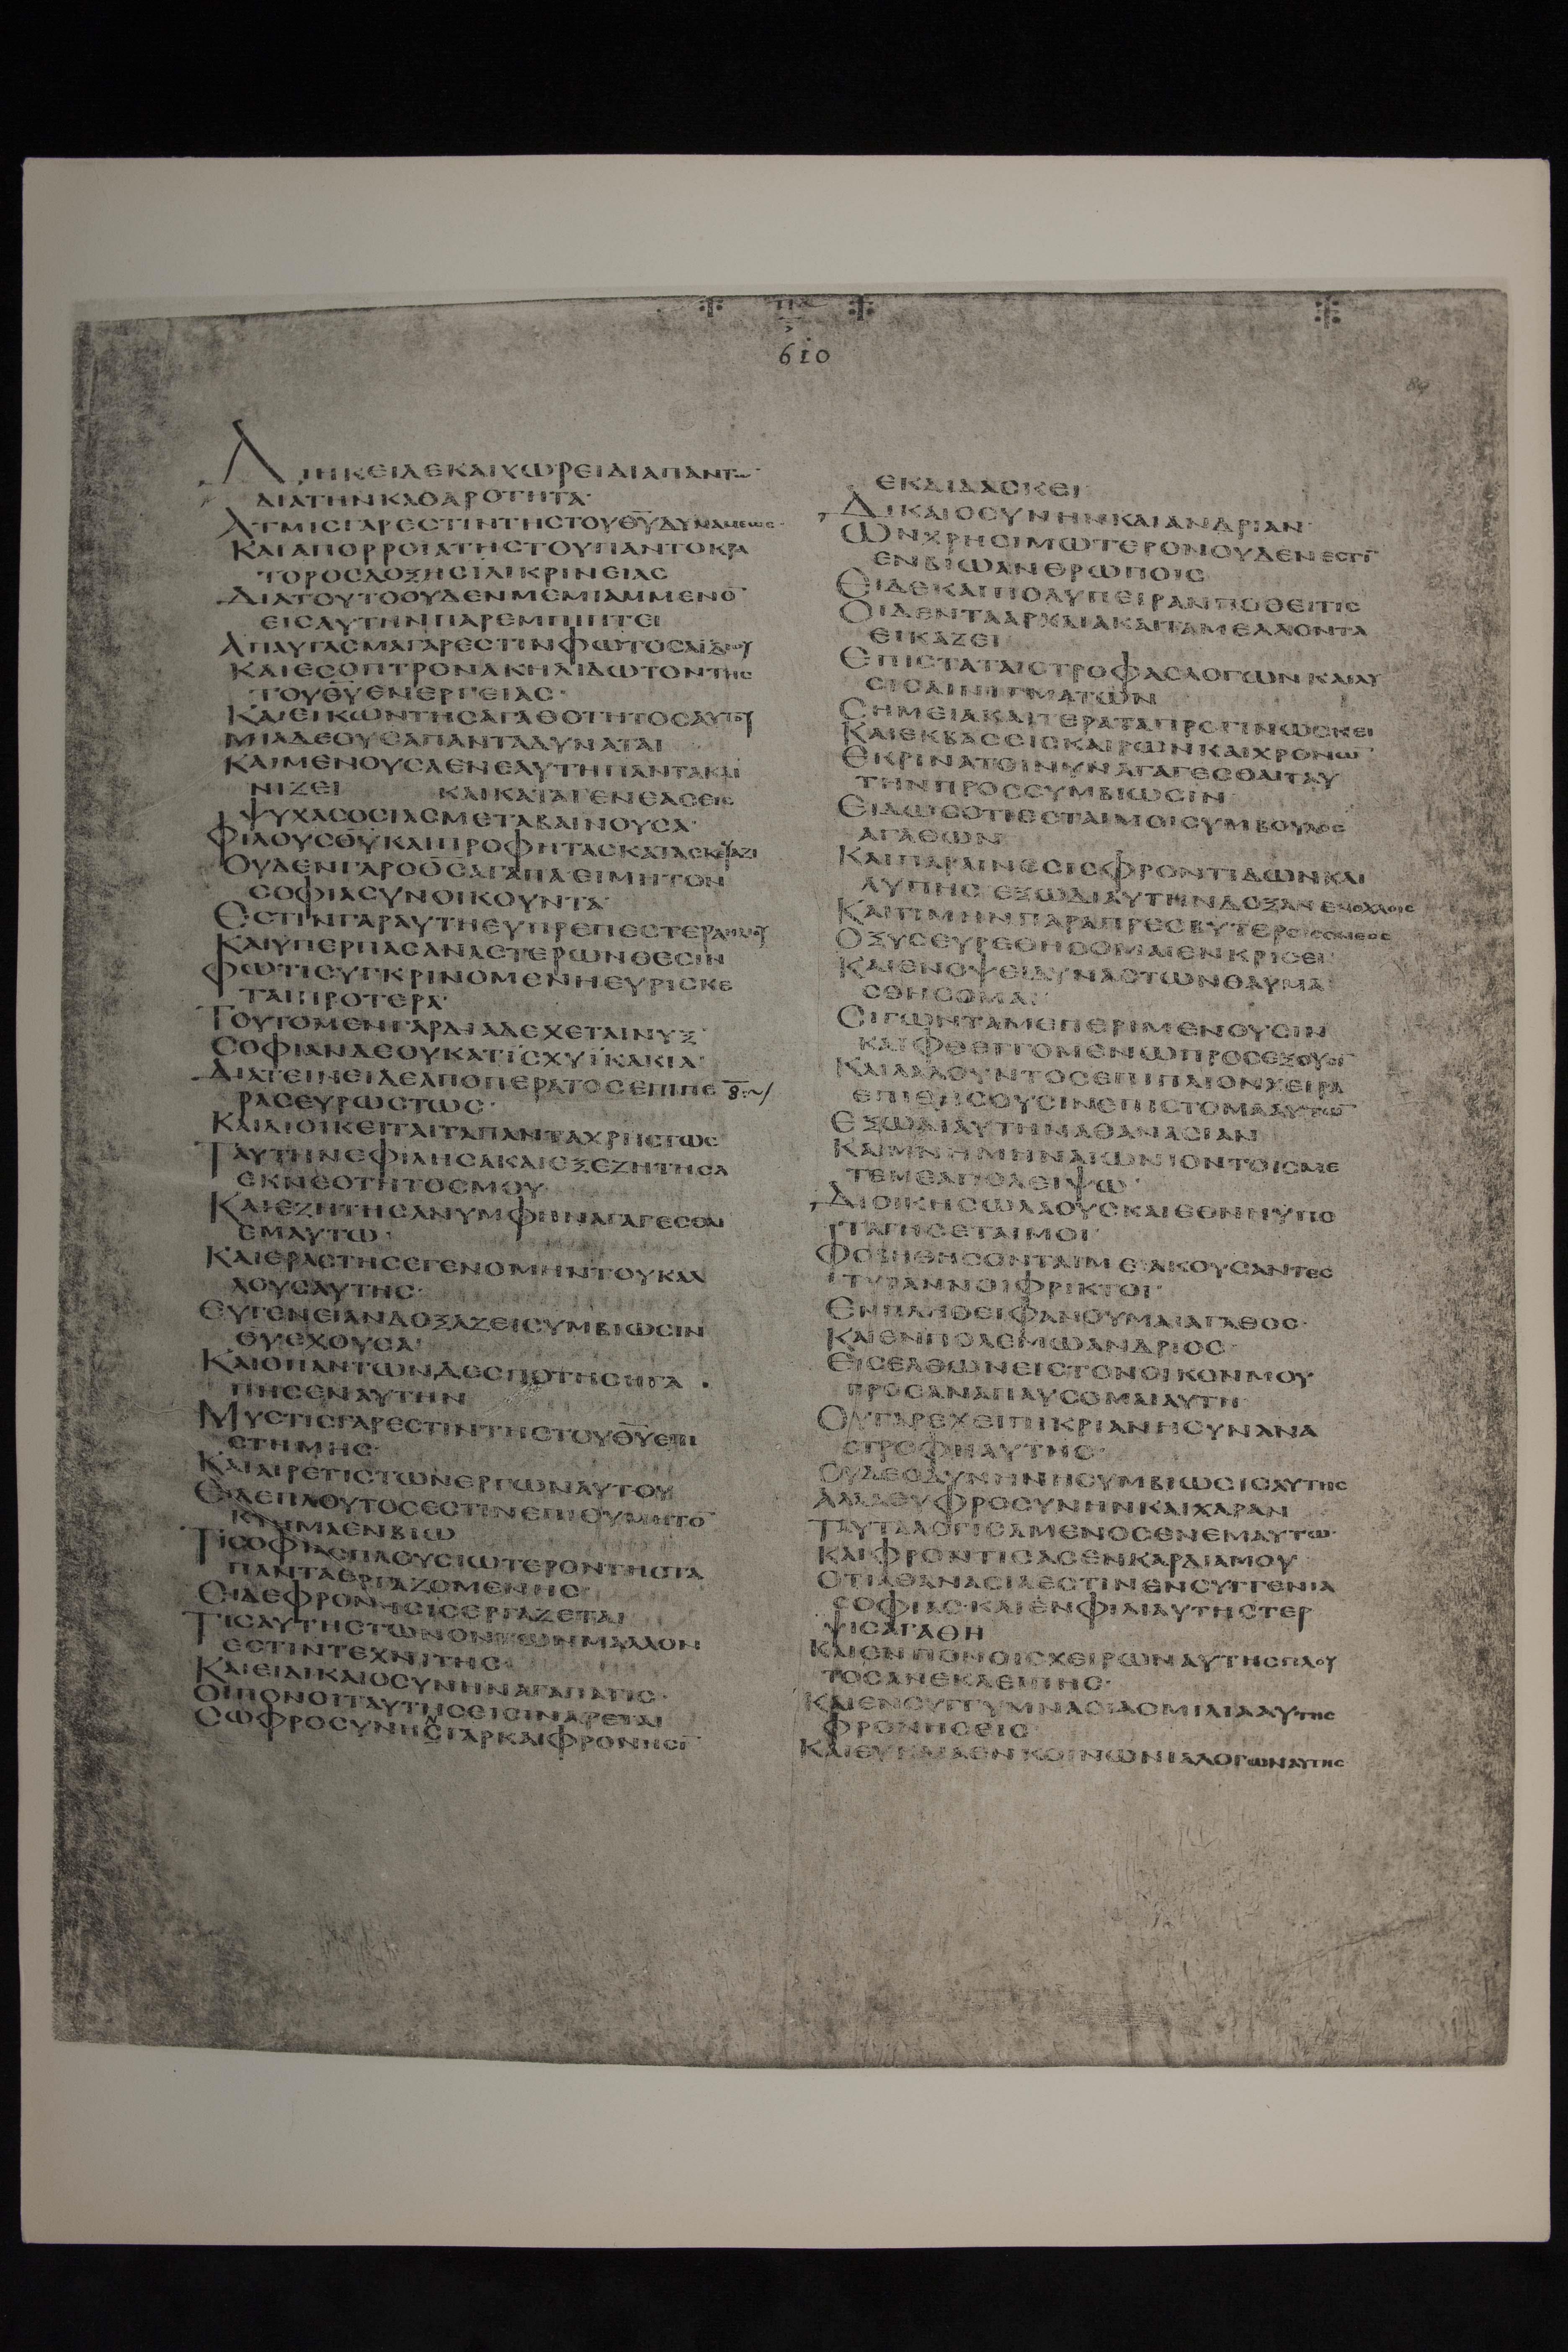 610
89
ΔΙΗΚΕΙΔΕΚΑΙΧΩΡΕΙΔΙΑΠΑΝΤΩ
ΔΙΑΤΗΝΚΑΘΑΡΟΤΗΤΑ·
ΑΤΜΙСΓΑΡΕСΤΙΝΤΗСΤΟΥΘΥΔΥΝΑΜΕΩС·
ΚΑΙΑΠΟΡΡΟΙΑΤΗСΤΟΥΠΑΝΤΟΚΡΑ
ΤΟΡΟСΔΟΞΗСΙΛΙΚΡΙΝΕΙΑС
ΔΙΑΤΟΥΤΟΟΥΔΕΝΜΕΜΙΑΜΜΕΝΟ
ΕΙСΑΥΤΗΝΠΑΡΕΜΠΙΠΤΕΙ
ΑΠΑΥΓΑСΜΑΓΑΡΕСΤΙΝΦΩΤΟСΑΪΔΙΟΥ
ΚΑΙΕСΟΠΤΡΟΝΑΚΗΛΙΔΩΤΟΝΤΗС
ΤΟΥΘΥΕΝΕΡΓΕΙΑС·
ΚΑΙΕΙΚΩΝΤΗСΑΓΑΘΟΤΗΤΟСΑΥΤΟΥ
ΜΙΑΔΕΟΥСΑΠΑΝΤΑΔΥΝΑΤΑΙ
ΚΑΙΜΕΝΟΥСΑΕΝΕΑΥΤΗΠΑΝΤΑΚΑΙ
ΝΙΖΕΙ ΚΑΙΚΑΤΑΓΕΝΕΑСΕΙС
ΨΥΧΑСΟСΙΑСΜΕΤΑΒΑΙΝΟΥСΑ·
ΦΙΛΟΥСΘΥΚΑΙΠΡΟΦΗΤΑСΚΑΤΑСΚΕΥΑΖΙ
ΟΥΔΕΝΓΑΡΟΘСΑΓΑΠΑΕΙΜΗΤΟΝ
СΟΦΙΑСΥΝΟΙΚΟΥΝΤΑ·
ΕСΤΙΝΓΑΡΑΥΤΗΕΥΠΡΕΠΕСΤΕΡΑΗΛΙΟΥ
ΚΑΙΫΠΕΡΠΑСΑΝΑСΤΕΡΩΝΘΕСΙΝ
ΦΩΤΙСΥΓΚΡΙΝΟΜΕΝΗΕΥΡΙСΚΕ
ΤΑΙΠΡΟΤΕΡΑ·
ΤΟΥΤΟΜΕΝΓΑΡΔΙΑΔΕΧΕΤΑΙΝΥΞ
СΟΦΙΑΝΔΕΟΥΚΑΤΪСΧΥΪΚΑΚΙΑ·
ΔΙΑΤΕΙΝΕΙΔΕΑΠΟΠΕΡΑΤΟСΕΠΙΠΕ
ΡΑСΕΥΡΩСΤΩС·
ΚΑΙΔΙΟΙΚΕΙΤΑΙΤΑΠΑΝΤΑΧΡΗСΤΩС
ΤΑΥΤΗΝΕΦΙΛΗСΑΚΑΙΕΞΕΖΗΤΗСΑ
ΕΚΝΕΟΤΗΤΟСΜΟΥ
ΚΑΙΕΖΗΤΗСΑΝΥΜΦΗΝΑΓΑΓΕСΘΑΙ
ΕΜΑΥΤΩ·
ΚΑΙΕΡΑСΤΗСΕΓΕΝΟΜΗΝΤΟΥΚΑΛ
ΛΟΥСΑΥΤΗС·
ΕΥΓΕΝΕΙΑΝΔΟΞΑΖΕΙСΥΜΒΙΩСΙΝ
ΘΥΕΧΟΥСΑ·
ΚΑΙΟΠΑΝΤΩΝΔΕСΠΟΤΗСΗΓΑ
ΠΗСΕΝΑΥΤΗΝ
ΜΥСΤΙСΓΑΡΕСΤΙΝΤΗСΤΟΥΘΥΕΠΙ
СΤΗΜΗС·
ΚΑΙΑΙΡΕΤΙСΤΩΝΕΡΓΩΝΑΥΤΟΥ
ΕΙΔΕΠΛΟΥΤΟСΕСΤΙΝΕΠΙΘΥΜΗΤΟ
ΚΤΗΜΑΕΝΒΙΩ
ΤΙСΟΦΙΑСΠΛΟΥСΙΩΤΕΡΟΝΤΗСΤΑ
ΠΑΝΤΑΕΡΓΑΖΟΜΕΝΗС
ΕΙΔΕΦΡΟΝΗСΙСΕΡΓΑΖΕΤΑΙ
ΤΙСΑΥΤΗСΤΩΝΟΝΤΩΝΜΑΛΛΟΝ
ΕСΤΙΝΤΕΧΝΙΤΗС·
ΚΑΙΕΙΔΙΚΑΙΟСΥΝΗΝΑΓΑΠΑΤΙС·
ΟΙΠΟΝΟΙΤΑΥΤΗСΕΙСΙΝΑΡΕΤΑΙ
СΩΦΡΟСΥΝΗΝΓΑΡΚΑΙΦΡΟΝΗСΙ
ΕΚΔΙΔΑСΚΕΙ
ΔΙΚΑΙΟСΥΝΗΝΚΑΙΑΝΔΡΙΑΝ
ΩΝΧΡΗСΙΜΩΤΕΡΟΝΟΥΔΕΝΕСΤΙ
ΕΝΒΙΩΑΝΘΡΩΠΟΙС
ΕΙΔΕΚΑΙΠΟΛΥΠΕΙΡΑΝΠΟΘΕΙΤΙС
ΟΙΔΕΝΤΑΑΡΧΑΙΑΚΑΙΤΑΜΕΛΛΟΝΤΑ
ΕΙΚΑΖΕΙ
ΕΠΙСΤΑΤΑΙСΤΡΟΦΑСΛΟΓΩΝΚΑΙΛΥ
СΙСΑΙΝΙΓΜΑΤΩΝ
СΗΜΕΙΑΚΑΙΤΕΡΑΤΑΠΡΟΓΙΝΩСΚΕΙ
ΚΑΙΕΚΒΑСΕΙСΚΑΙΡΩΝΚΑΙΧΡΟΝΩ
ΕΚΡΙΝΑΤΟΙΝΥΝΑΓΑΓΕСΘΑΙΤΑΥ
ΤΗΝΠΡΟССΥΜΒΙΩСΙΝ
ΕΙΔΩСΟΤΙΕСΤΑΙΜΟΙСΥΜΒΟΥΛΟС
ΑΓΑΘΩΝ
ΚΑΙΠΑΡΑΙΝΕСΙСΦΡΟΝΤΙΔΩΝΚΑΙ
ΛΥΠΗС ΕΞΩΔΙΑΥΤΗΝΔΟΞΑΝΕΝΟΧΛΟΙС
ΚΑΙΤΙΜΗΝΠΑΡΑΠΡΕСΒΥΤΕΡΟΙСΟΝΕΟС
ΟΞΥСΕΥΡΕΘΗСΟΜΑΙΕΝΚΡΙСΕΙ·
ΚΑΙΕΝΟΨΕΙΔΥΝΑСΤΩΝΘΑΥΜΑ
СΘΗСΟΜΑΙ·
СΙΓΩΝΤΑΜΕΠΕΡΙΜΕΝΟΥСΙΝ
ΚΑΙΦΘΕΓΓΟΜΕΝΩΠΡΟСΕΞΟΥСΙ
ΚΑΙΛΑΛΟΥΝΤΟСΕΠΙΠΛΙΟΝΧΕΙΡΑ
ΕΠΙΘΗСΟΥСΙΝΕΠΙСΤΟΜΑΑΥΤΩ
ΕΞΩΔΙΑΥΤΗΝΑΘΑΝΑСΙΑΝ
ΚΑΙΜΝΗΜΗΝΑΙΩΝΙΟΝΤΟΙСΜΕ
ΤΕΜΕΑΠΟΛΕΙΨΩ·
ΔΙΟΙΚΗСΩΛΑΟΥСΚΑΙΕΘΝΗΫΠΟ
ΤΑΓΗСΕΤΑΙΜΟΙ
ΦΟΒΗΘΗСΟΝΤΑΙΜΕΑΚΟΥСΑΝΤΕС
ΤΥΡΑΝΝΟΙΦΡΙΚΤΟΙ·
ΕΝΠΛΗΘΕΙΦΑΝΟΥΜΑΙΑΓΑΘΟС·
ΚΑΙΕΝΠΟΛΕΜΩΑΝΔΡΙΟС·
ΕΙСΕΛΘΩΝΕΙСΤΟΝΟΙΚΟΝΜΟΥ
ΠΡΟСΑΝΑΠΑΥСΟΜΑΙΑΥΤΗ·
ΟΥΓΑΡΕΧΕΙΠΙΚΡΙΑΝΗСΥΝΑΝΑ
СΤΡΟΦΗΑΥΤΗС·
ΟΥΔΕΟΔΥΝΗΝΗСΥΜΒΙΩСΙСΑΥΤΗС
ΑΛΛΑΕΥΦΡΟСΥΝΗΝΚΑΙΧΑΡΑΝ
ΤΑΥΤΑΛΟΓΙСΑΜΕΝΟСΕΝΕΜΑΥΤΩ·
ΚΑΙΦΡΟΝΤΙСΑСΕΝΚΑΡΔΙΑΜΟΥ
ΟΤΙΑΘΑΝΑСΙΑΕСΤΙΝΕΝСΥΓΓΕΝΙΑ
СΟΦΙΑС·ΚΑΙΕΝΦΙΛΙΑΑΥΤΗСΤΕΡ
ΨΙСΑΓΑΘΗ
ΚΑΙΕΝΠΟΝΟΙСΧΕΙΡΩΝΑΥΤΗСΠΛΟΥ
ΤΟСΑΝΕΚΛΕΙΠΗС·
ΚΑΙΕΝСΥΓΓΥΜΝΑСΙΑΟΜΙΛΙΑΑΥΤΗС
ΦΡΟΝΗСΕΙС
ΚΑΙΕΥΚΛΕΙΑΕΝΚΟΙΝΩΝΙΑΛΟΓΩΝΑΥΤΗС